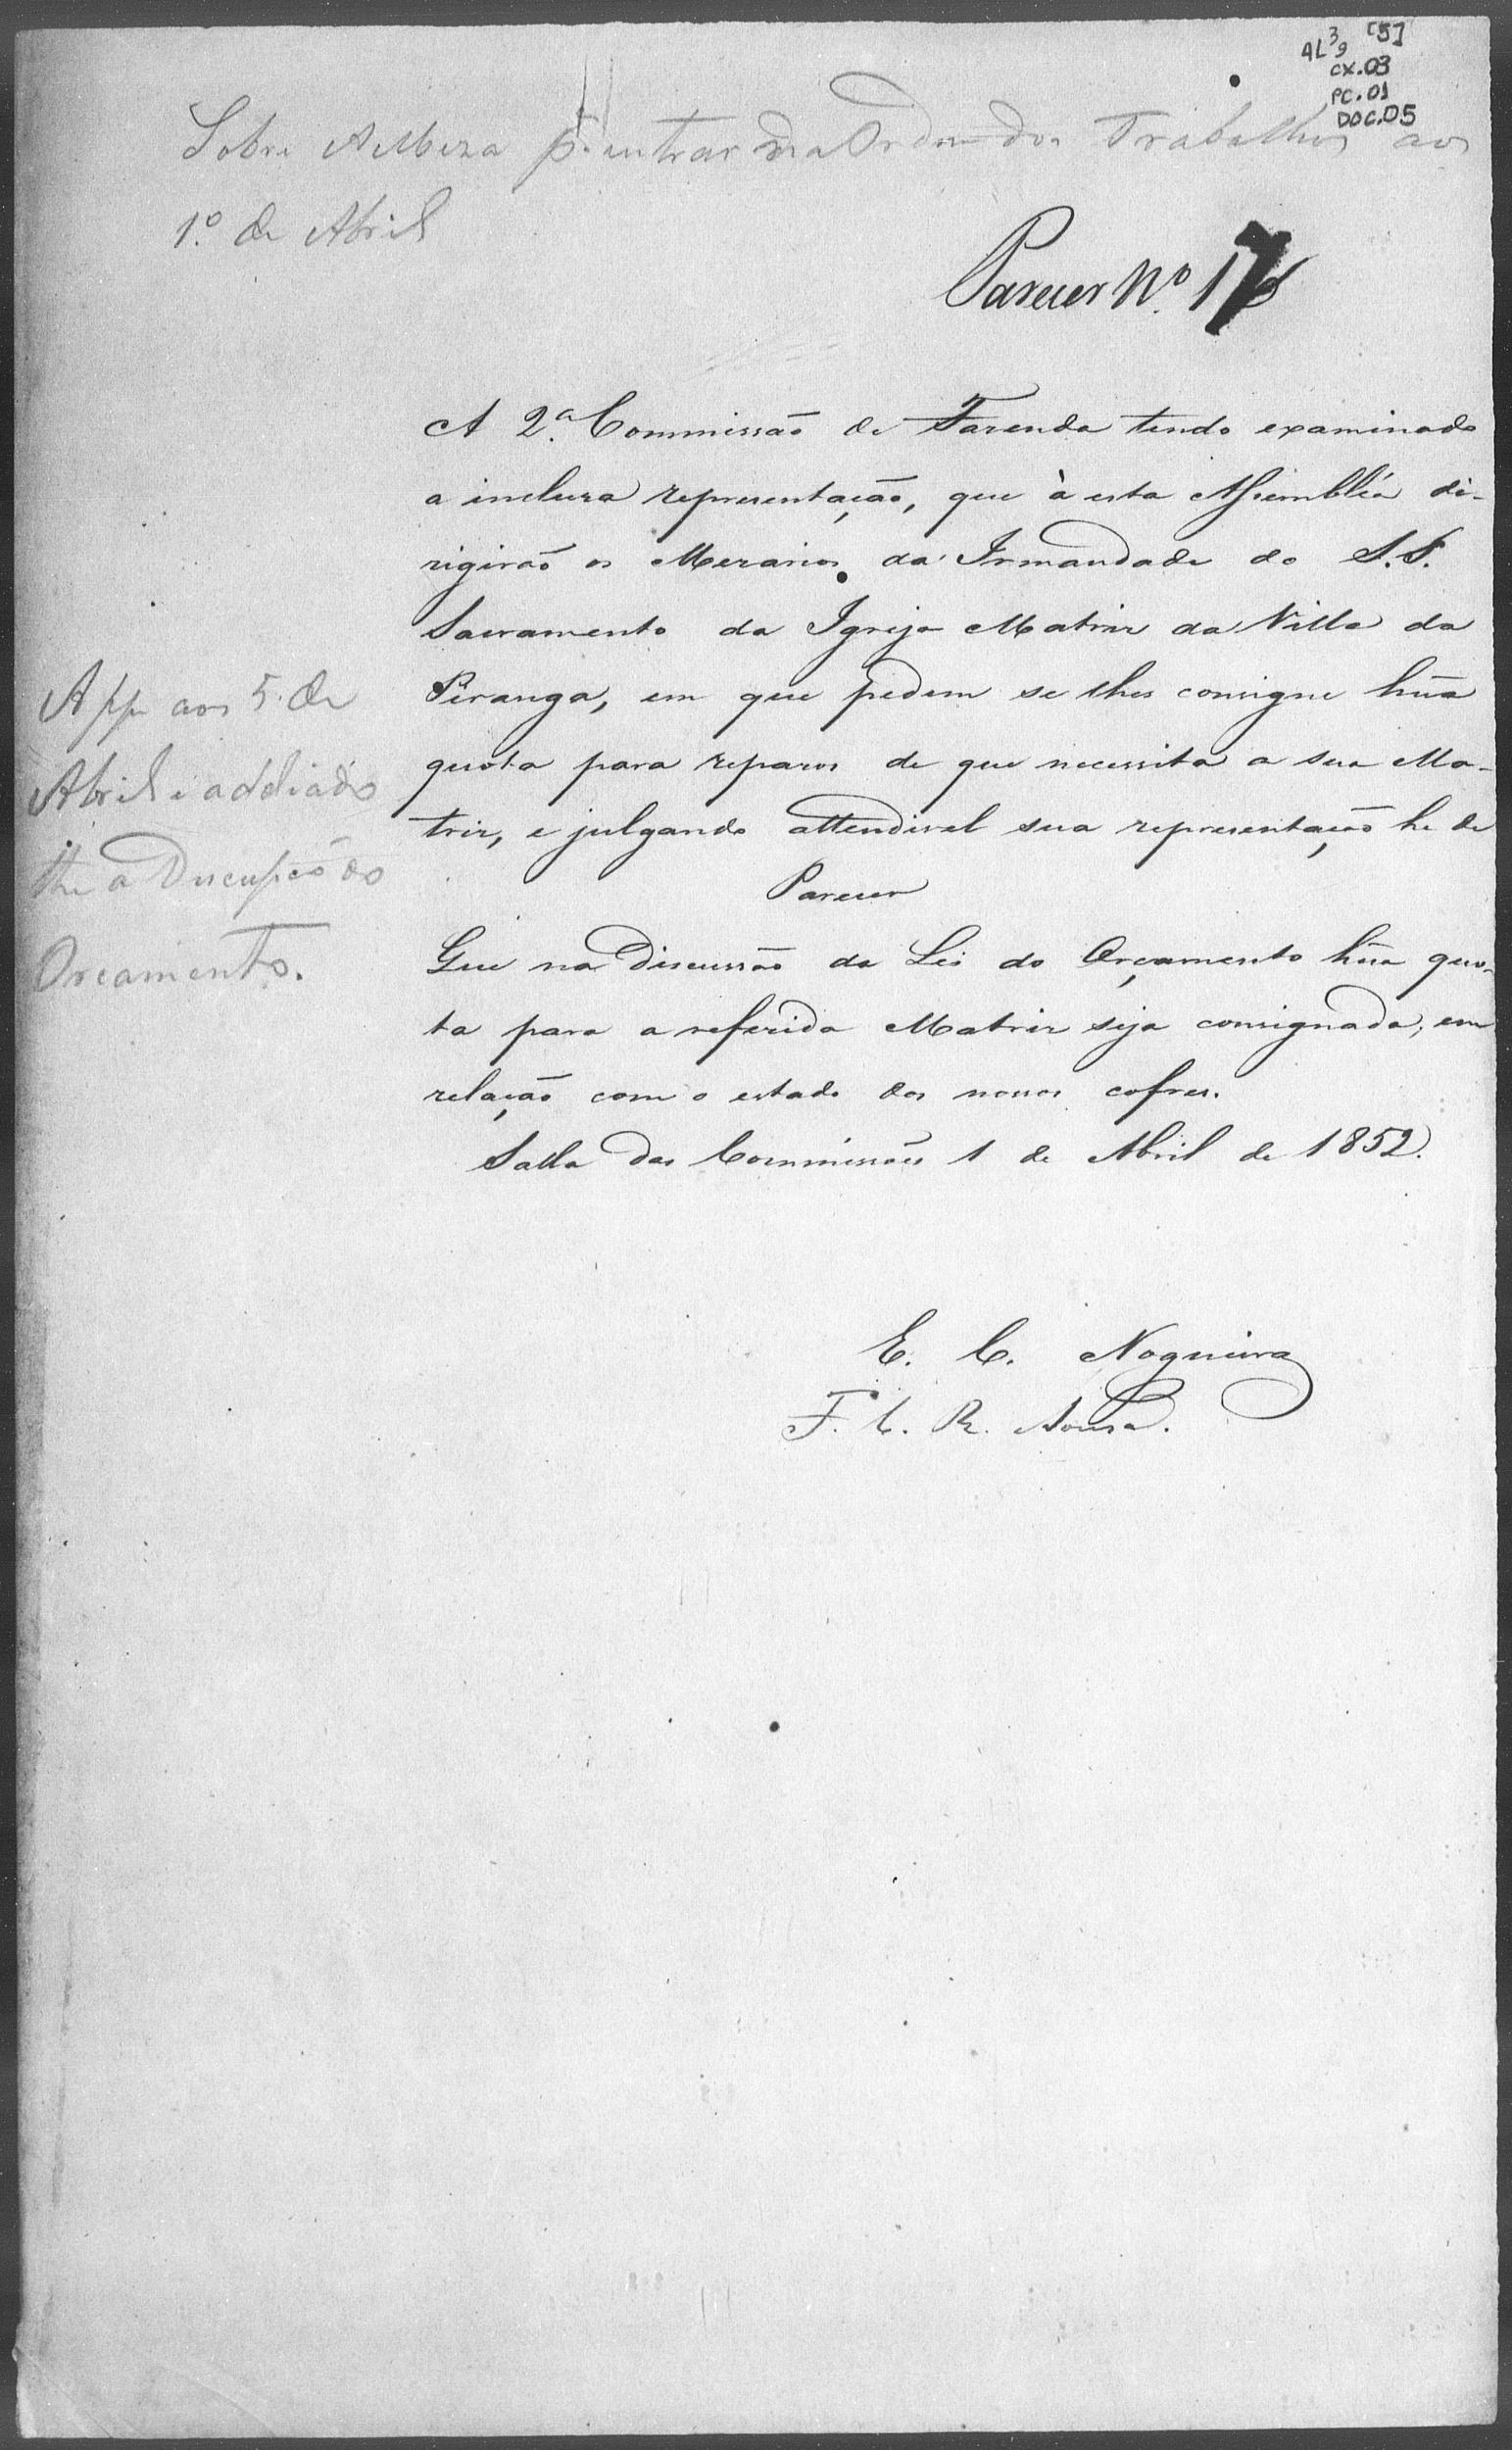 AL 3 9 [5]
CX.03
PC.01
DOC.05
Sobre A Meza p.ª entrar na Ordem dos Trabalhos aos
1.º de Abril
Parecer Nº 17
A 2.ª Commissão de Fazenda tendo examinado
a incluza representação, que à esta Assembléa di-
rigirão os Mezarios da Irmandade do S.S.
Sacramento da Igreja Matriz da Villa da
Piranga, em que pedem se lhes consigne hũa
quota para reparos de que necessita a sua Ma-
triz, e julgando attendivel sua representação he de
Parecer
App aos 5 de
Abril e addiado
the a Discussão do
Orcamento.
Que na Discussão da Lei do Orçamento hũa quo-
ta para a referida Matriz seja consignada, em
relação com o estado dos nossos cofres.
Salla das Commissões 1 de Abril de 1852.
E. C. Nogueira
F. C. R. Sousa.